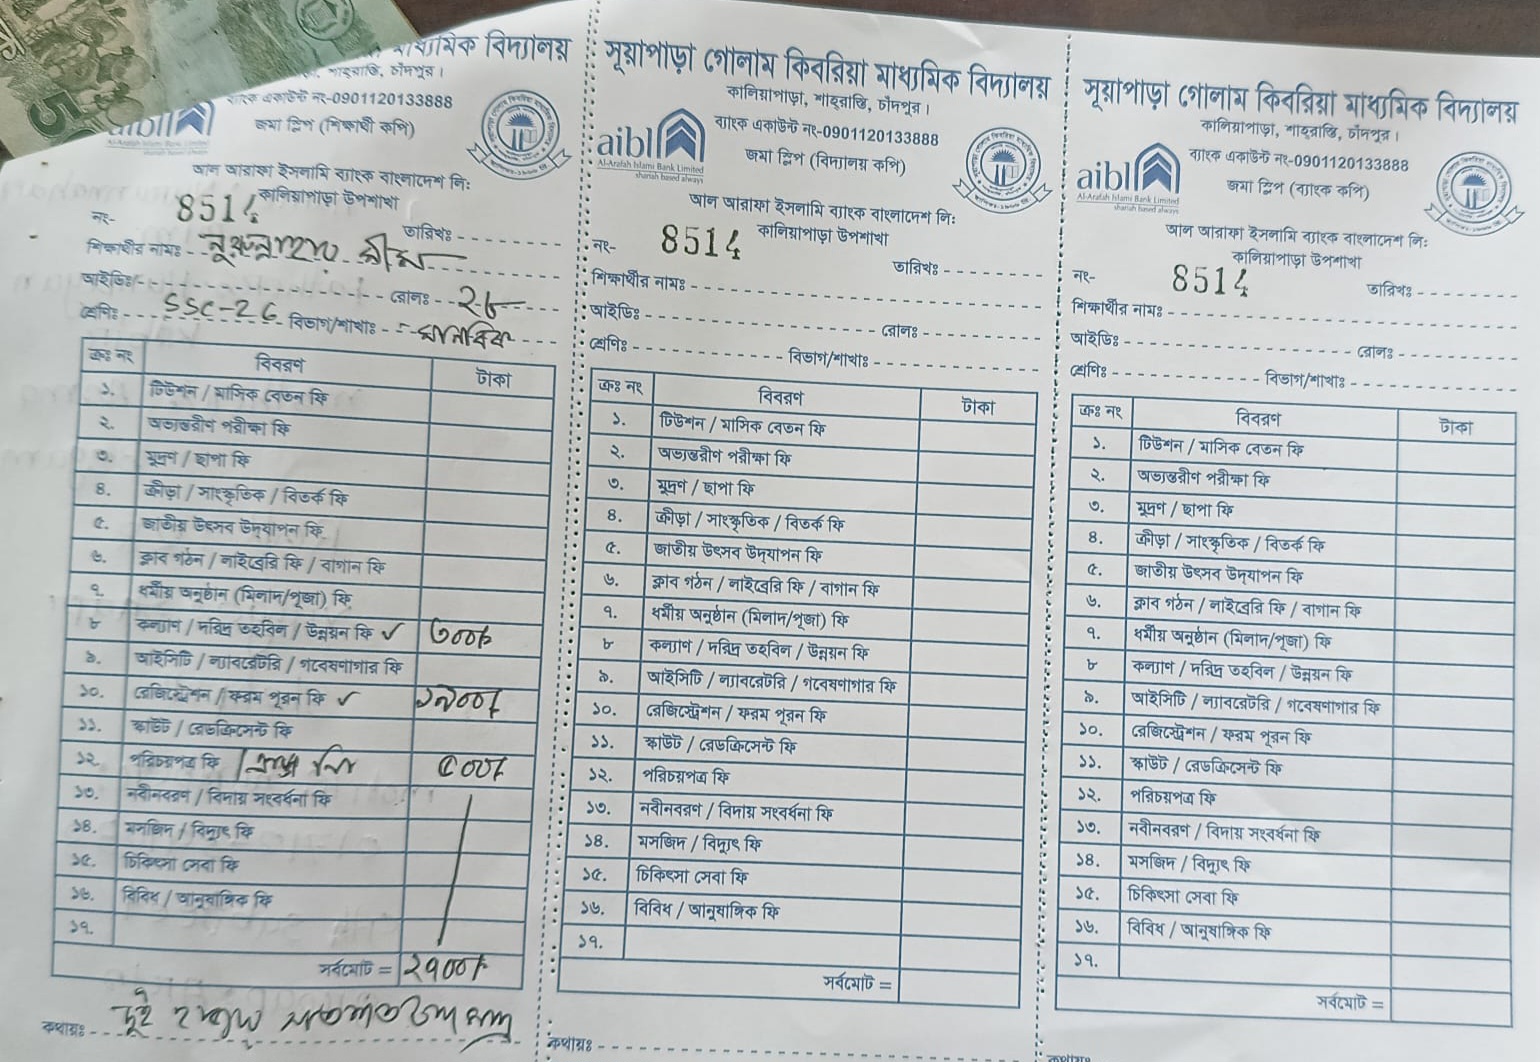 মাধ্যমিক বিদ্যালয়
শাহরাস্তি, চাঁদপুর।
ব্যাংক একাউন্ট নং-0901120133888
জমা স্লিপ (শিক্ষার্থী কপি)
আল আরাফা ইসলামি ব্যাংক বাংলাদেশ লি:
কালিয়াপাড়া উপশাখা
নং- 8514
তারিখঃ
শিক্ষার্থীর নামঃ
আইডিঃ রোলঃ ২৮
শ্রেণিঃ SSC-26 বিভাগ/শাখাঃ মানবিক
ক্রঃ নং বিবরণ টাকা
১. টিউশন / মাসিক বেতন ফি
২. অভ্যন্তরীণ পরীক্ষা ফি
৩. মুদ্রণ / ছাপা ফি
৪. ক্রীড়া / সাংস্কৃতিক / বিতর্ক ফি
৫. জাতীয় উৎসব উদযাপন ফি
৬. ক্লাব গঠন / লাইব্রেরি ফি / বাগান ফি
৭. ধর্মীয় অনুষ্ঠান (মিলাদ/পূজা) ফি
৮ কল্যাণ / দরিদ্র তহবিল / উন্নয়ন ফি ✓ ৩০০/-
৯. আইসিটি / ল্যাবরেটরি / গবেষণাগার ফি
১০. রেজিস্ট্রেশন / ফরম পূরন ফি ✓ ১৯০০/-
১১. স্কাউট / রেডক্রিসেন্ট ফি
১২. পরিচয়পত্র ফি ৫০০/-
১৩. নবীনবরণ / বিদায় সংবর্ধনা ফি
১৪. মসজিদ / বিদ্যুৎ ফি
১৫. চিকিৎসা সেবা ফি
১৬. বিবিধ / আনুষাঙ্গিক ফি
১৭.
সর্বমোট = ২৭০০/-
কথায়ঃ দুই হাজার সাতশত টাকা মাত্র
সূয়াপাড়া গোলাম কিবরিয়া মাধ্যমিক বিদ্যালয়
কালিয়াপাড়া, শাহরাস্তি, চাঁদপুর।
ব্যাংক একাউন্ট নং-0901120133888
aibl
Al-Arafah Islami Bank Limited
shariah based always
জমা স্লিপ (বিদ্যালয় কপি)
আল আরাফা ইসলামি ব্যাংক বাংলাদেশ লি:
কালিয়াপাড়া উপশাখা
নং- 8514
তারিখঃ
শিক্ষার্থীর নামঃ
আইডিঃ রোলঃ
শ্রেণিঃ বিভাগ/শাখাঃ
ক্রঃ নং বিবরণ টাকা
১. টিউশন / মাসিক বেতন ফি
২. অভ্যন্তরীণ পরীক্ষা ফি
৩. মুদ্রণ / ছাপা ফি
৪. ক্রীড়া / সাংস্কৃতিক / বিতর্ক ফি
৫. জাতীয় উৎসব উদযাপন ফি
৬. ক্লাব গঠন / লাইব্রেরি ফি / বাগান ফি
৭. ধর্মীয় অনুষ্ঠান (মিলাদ/পূজা) ফি
৮ কল্যাণ / দরিদ্র তহবিল / উন্নয়ন ফি
৯. আইসিটি / ল্যাবরেটরি / গবেষণাগার ফি
১০. রেজিস্ট্রেশন / ফরম পূরন ফি
১১. স্কাউট / রেডক্রিসেন্ট ফি
১২. পরিচয়পত্র ফি
১৩. নবীনবরণ / বিদায় সংবর্ধনা ফি
১৪. মসজিদ / বিদ্যুৎ ফি
১৫. চিকিৎসা সেবা ফি
১৬. বিবিধ / আনুষাঙ্গিক ফি
১৭.
সর্বমোট =
কথায়ঃ
সূয়াপাড়া গোলাম কিবরিয়া মাধ্যমিক বিদ্যালয়
কালিয়াপাড়া, শাহরাস্তি, চাঁদপুর।
ব্যাংক একাউন্ট নং-0901120133888
aibl
Al-Arafah Islami Bank Limited
shariah based always
জমা স্লিপ (ব্যাংক কপি)
আল আরাফা ইসলামি ব্যাংক বাংলাদেশ লি:
কালিয়াপাড়া উপশাখা
নং- 8514
তারিখঃ
শিক্ষার্থীর নামঃ
আইডিঃ রোলঃ
শ্রেণিঃ বিভাগ/শাখাঃ
ক্রঃ নং বিবরণ টাকা
১. টিউশন / মাসিক বেতন ফি
২. অভ্যন্তরীণ পরীক্ষা ফি
৩. মুদ্রণ / ছাপা ফি
৪. ক্রীড়া / সাংস্কৃতিক / বিতর্ক ফি
৫. জাতীয় উৎসব উদযাপন ফি
৬. ক্লাব গঠন / লাইব্রেরি ফি / বাগান ফি
৭. ধর্মীয় অনুষ্ঠান (মিলাদ/পূজা) ফি
৮ কল্যাণ / দরিদ্র তহবিল / উন্নয়ন ফি
৯. আইসিটি / ল্যাবরেটরি / গবেষণাগার ফি
১০. রেজিস্ট্রেশন / ফরম পূরন ফি
১১. স্কাউট / রেডক্রিসেন্ট ফি
১২. পরিচয়পত্র ফি
১৩. নবীনবরণ / বিদায় সংবর্ধনা ফি
১৪. মসজিদ / বিদ্যুৎ ফি
১৫. চিকিৎসা সেবা ফি
১৬. বিবিধ / আনুষাঙ্গিক ফি
১৭.
সর্বমোট =